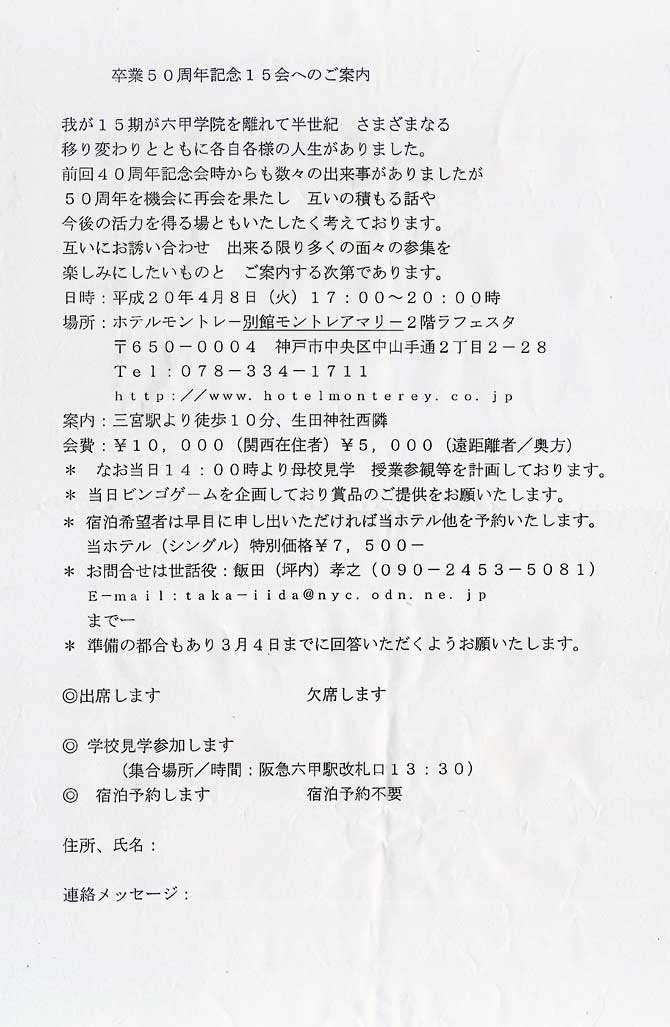 卒業５０周年記念１５会へのご案内
我が１５期が六甲学院を離れて半世紀　さまざまなる
移り変わりとともに各自各様の人生がありました。
前回４０周年記念会時からも数々の出来事がありましたが
５０周年を機会に再会を果たし　互いの積もる話や
今後の活力を得る場ともいたしたく考えております。
互いにお誘い合わせ　出来る限り多くの面々の参集を
楽しみにしたいものと　ご案内する次第であります。
日時：平成２０年４月８日（火）１７：００～２０：００時
場所：ホテルモントレー別館モントレアマリー２階ラフェスタ
〒６５０－０００４　神戸市中央区中山手通２丁目２－２８
Ｔｅｌ：０７８－３３４－１７１１
ｈｔｔｐ：／／ｗｗｗ．ｈｏｔｅｌｍｏｎｔｅｒｅｙ．ｃｏ．ｊｐ
案内：三宮駅より徒歩１０分、生田神社西隣
会費：￥１０，０００（関西在住者）￥５，０００（遠距離者／奥方）
＊　なお当日１４：００時より母校見学　授業参観等を計画しております。
＊　当日ビンゴゲームを企画しており賞品のご提供をお願いたします。
＊　宿泊希望者は早目に申し出いただければ当ホテル他を予約いたします。
当ホテル（シングル）特別価格￥７，５００－
＊　お問合せは世話役：飯田（坪内）孝之（０９０－２４５３－５０８１）
Ｅ－ｍａｉｌ：ｔａｋａ－ｉｉｄａ＠ｎｙｃ．ｏｄｎ．ｎｅ．ｊｐ
までー
＊　準備の都合もあり３月４日までに回答いただくようお願いたします。
◎出席します　　　　　　　　　欠席します
◎　学校見学参加します
（集合場所／時間：阪急六甲駅改札口１３：３０）
◎　宿泊予約します　　　　　　宿泊予約不要
住所、氏名：
連絡メッセージ：